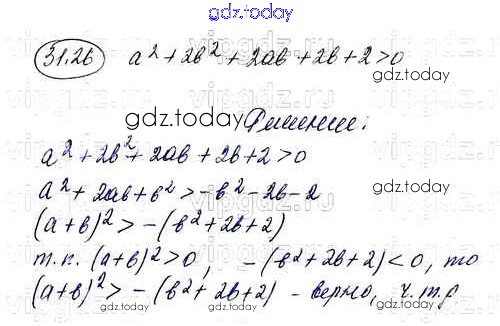 gdz.today
31.26 a² + 2b² + 2ab + 2b + 2 > 0
gdz.today
gdz.today Решение:
a² + 2b² + 2ab + 2b + 2 > 0
a² + 2ab + b² > -b² - 2b - 2
(a+b)² > -(b² + 2b + 2)
gdz.today
т.к. (a+b)² > 0, -(b² + 2b + 2) < 0, то
(a+b)² > -(b² + 2b + 2) - верно, ч.т.д
gdz.today